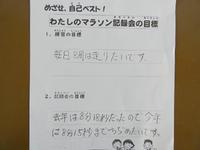 めざせ、自己ベスト！
わたしのマラソン記録会の目標
1．練習の目標
毎日8周は走りたいです。
2．記録会の目標
去年は8分18秒だったので今年
は8分15秒までちぢめたいです。